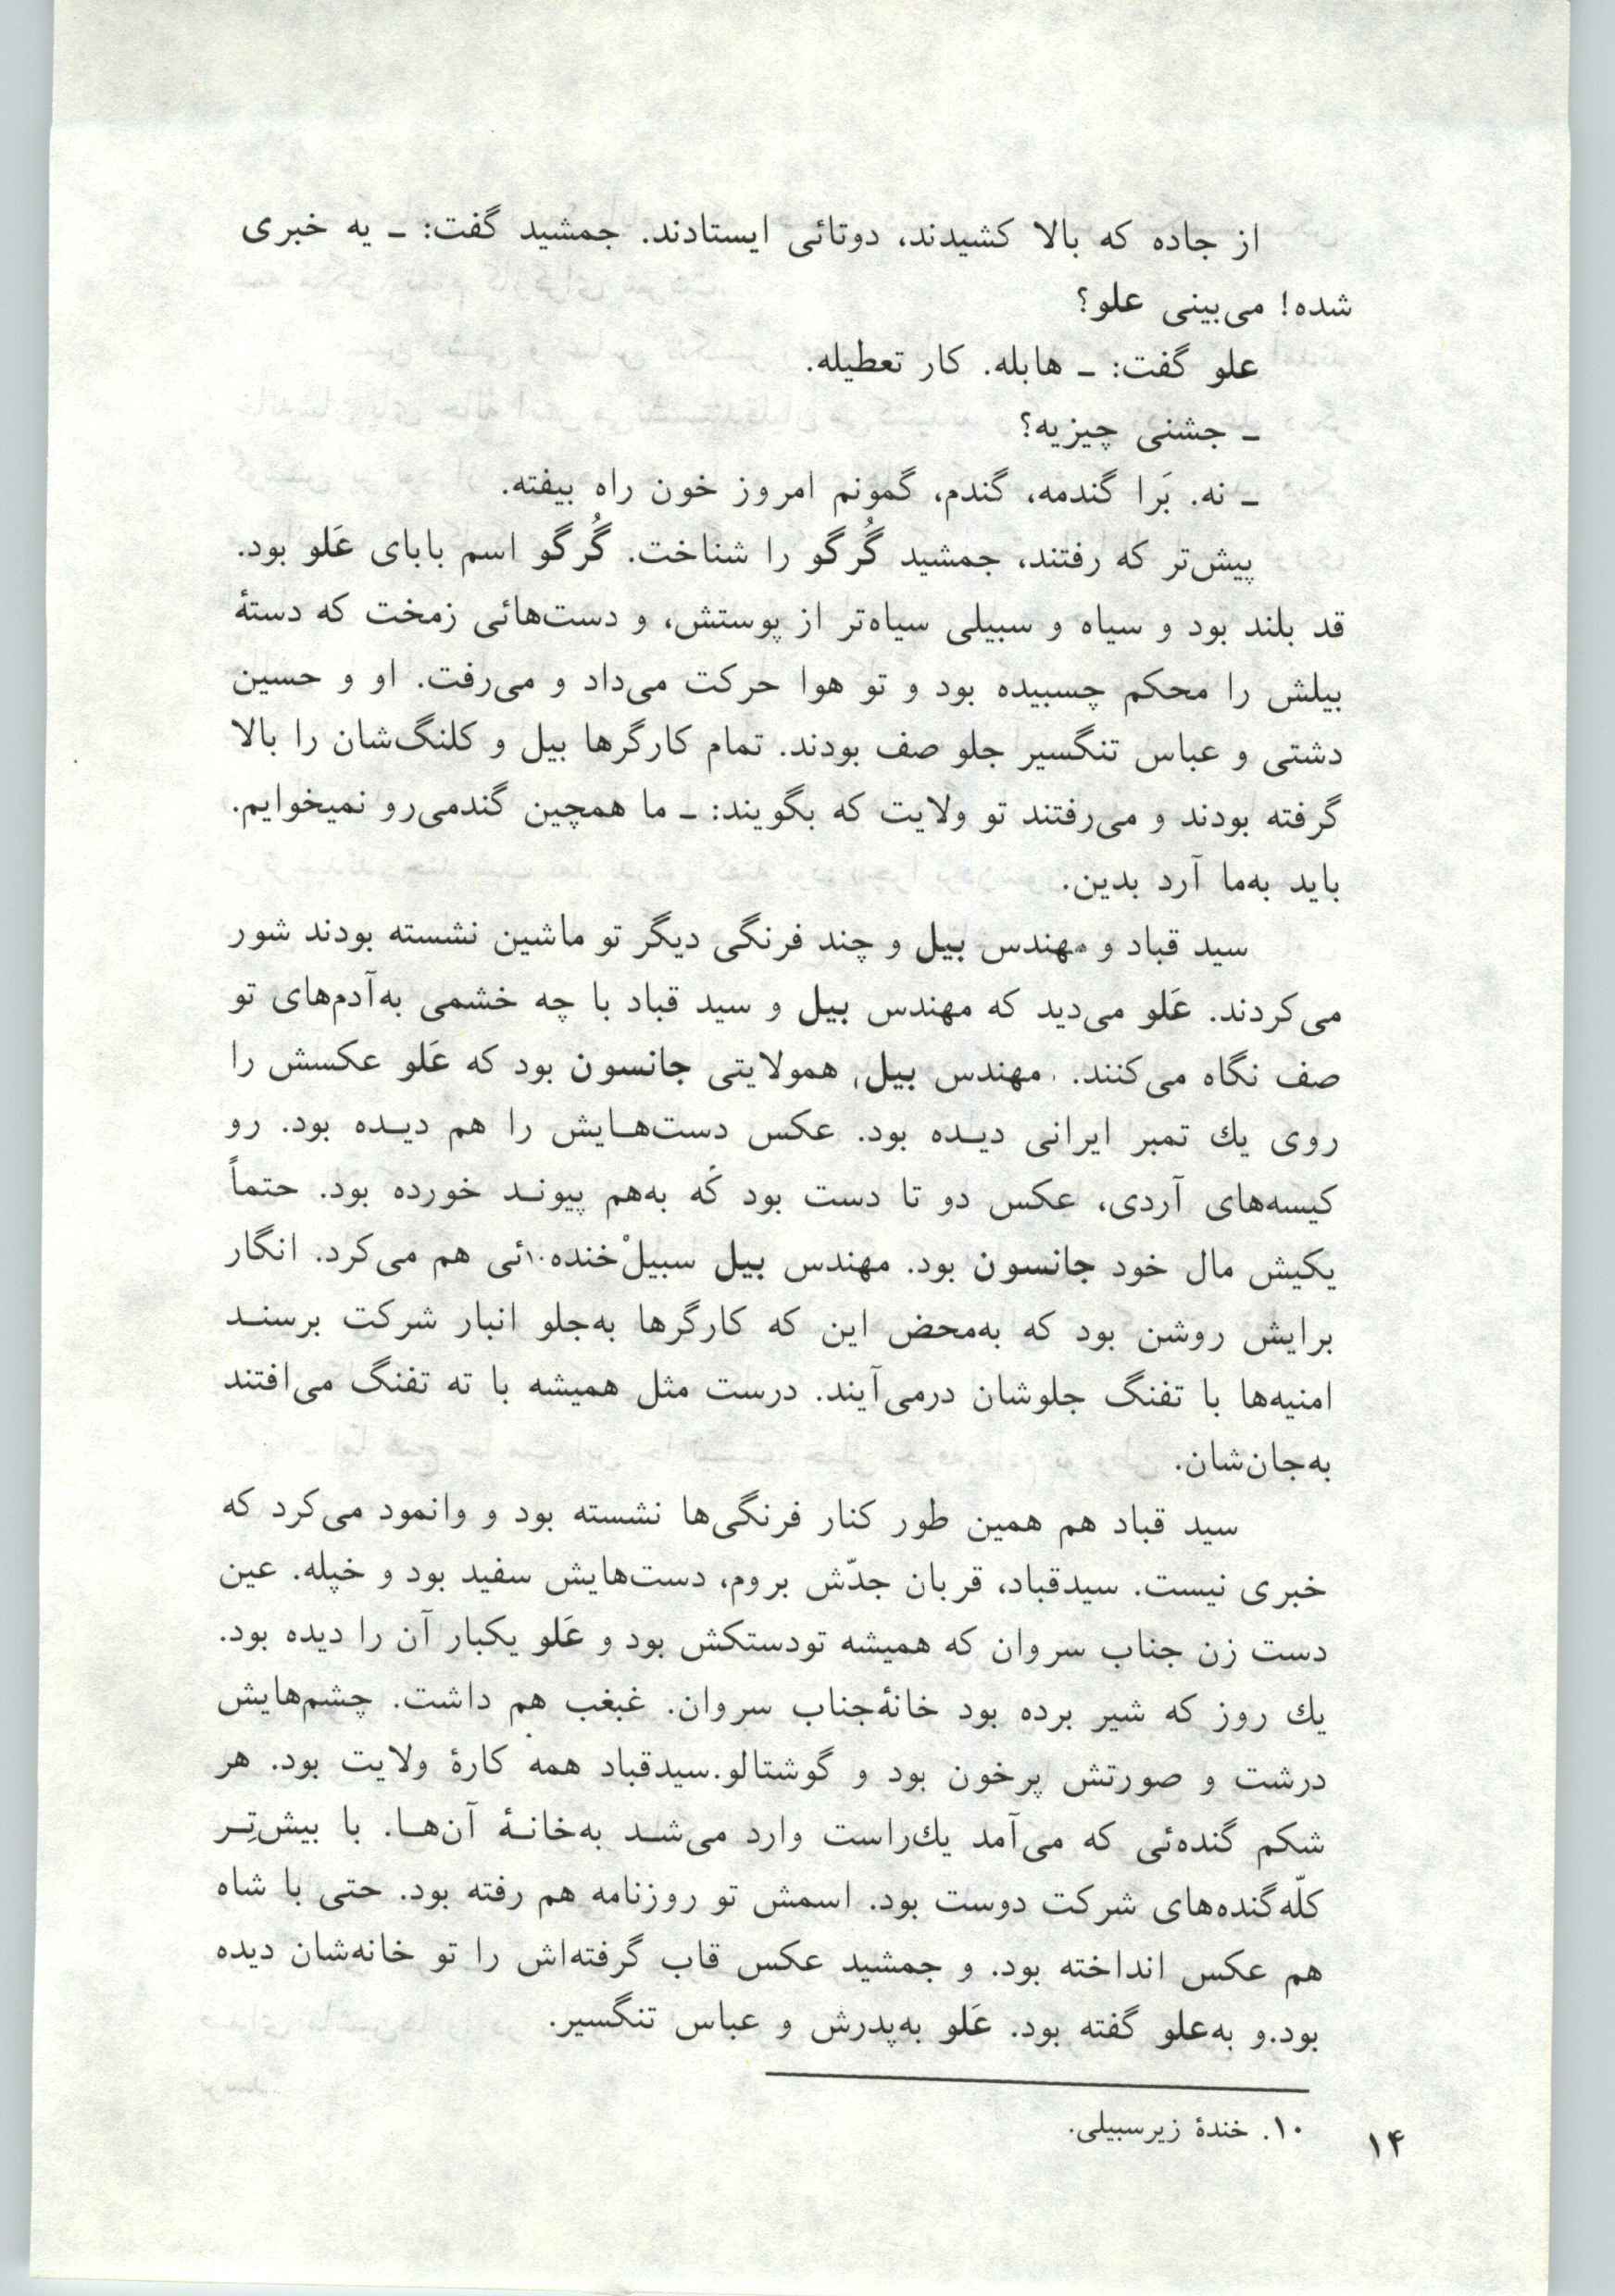 از جاده که بالا کشیدند، دوتائی ایستادند. جمشید گفت: ـ یه خبری
شده! می‌بینی علو؟
علو گفت: ـ هابله. کار تعطیله.
ـ جشنی چیزیه؟
ـ نه. بَرا گندمه، گندم، گمونم امروز خون راه بیفته.
پیش‌تر که رفتند، جمشید گُرگو را شناخت. گُرگو اسم بابای عَلو بود.
قد بلند بود و سیاه و سبیلی سیاه‌تر از پوستش، و دست‌هائی زمخت که دستهٔ
بیلش را محکم چسبیده بود و تو هوا حرکت می‌داد و می‌رفت. او و حسین
دشتی و عباس تنگسیر جلو صف بودند. تمام کارگرها بیل و کلنگ‌شان را بالا
گرفته بودند و می‌رفتند تو ولایت که بگویند: ـ ما همچین گندمی‌رو نمیخوایم.
باید به‌ما آرد بدین.
سید قباد و مهندس بیل و چند فرنگی دیگر تو ماشین نشسته بودند شور
می‌کردند. عَلو می‌دید که مهندس بیل و سید قباد با چه خشمی به‌آدم‌های تو
صف نگاه می‌کنند. مهندس بیل، همولایتی جانسون بود که عَلو عکسش را
روی یك تمبر ایرانی دیـده بود. عکس دست‌هـایش را هم دیـده بود. رو
کیسه‌های آردی، عکس دو تا دست بود که به‌هم پیونـد خورده بود. حتماً
یکیش مال خود جانسون بود. مهندس بیل سبیلْ‌خنده۱۰ئی هم می‌کرد. انگار
برایش روشن بود که به‌محض این که کارگرها به‌جلو انبار شرکت برسنـد
امنیه‌ها با تفنگ جلوشان درمی‌آیند. درست مثل همیشه با ته تفنگ می‌افتند
به‌جان‌شان.
سید قباد هم همین طور کنار فرنگی‌ها نشسته بود و وانمود می‌کرد که
خبری نیست. سیدقباد، قربان جدّش بروم، دست‌هایش سفید بود و خپله. عین
دست زن جناب سروان که همیشه تودستکش بود و عَلو یکبار آن را دیده بود.
یك روز که شیر برده بود خانهٔ‌جناب سروان. غبغب هم داشت. چشم‌هایش
درشت و صورتش پرخون بود و گوشتالو.سیدقباد همه کارهٔ ولایت بود. هر
شکم گنده‌ئی که می‌آمد یك‌راست وارد می‌شـد به‌خانـهٔ آن‌هـا. با بیش‌تِـر
کلّه‌گنده‌های شرکت دوست بود. اسمش تو روزنامه هم رفته بود. حتی با شاه
هم عکس انداخته بود. و جمشید عکس قاب گرفته‌اش را تو خانه‌شان دیده
بود.و به‌علو گفته بود. عَلو به‌پدرش و عباس تنگسیر.
۱۰. خندهٔ زیرسبیلی.
۱۴